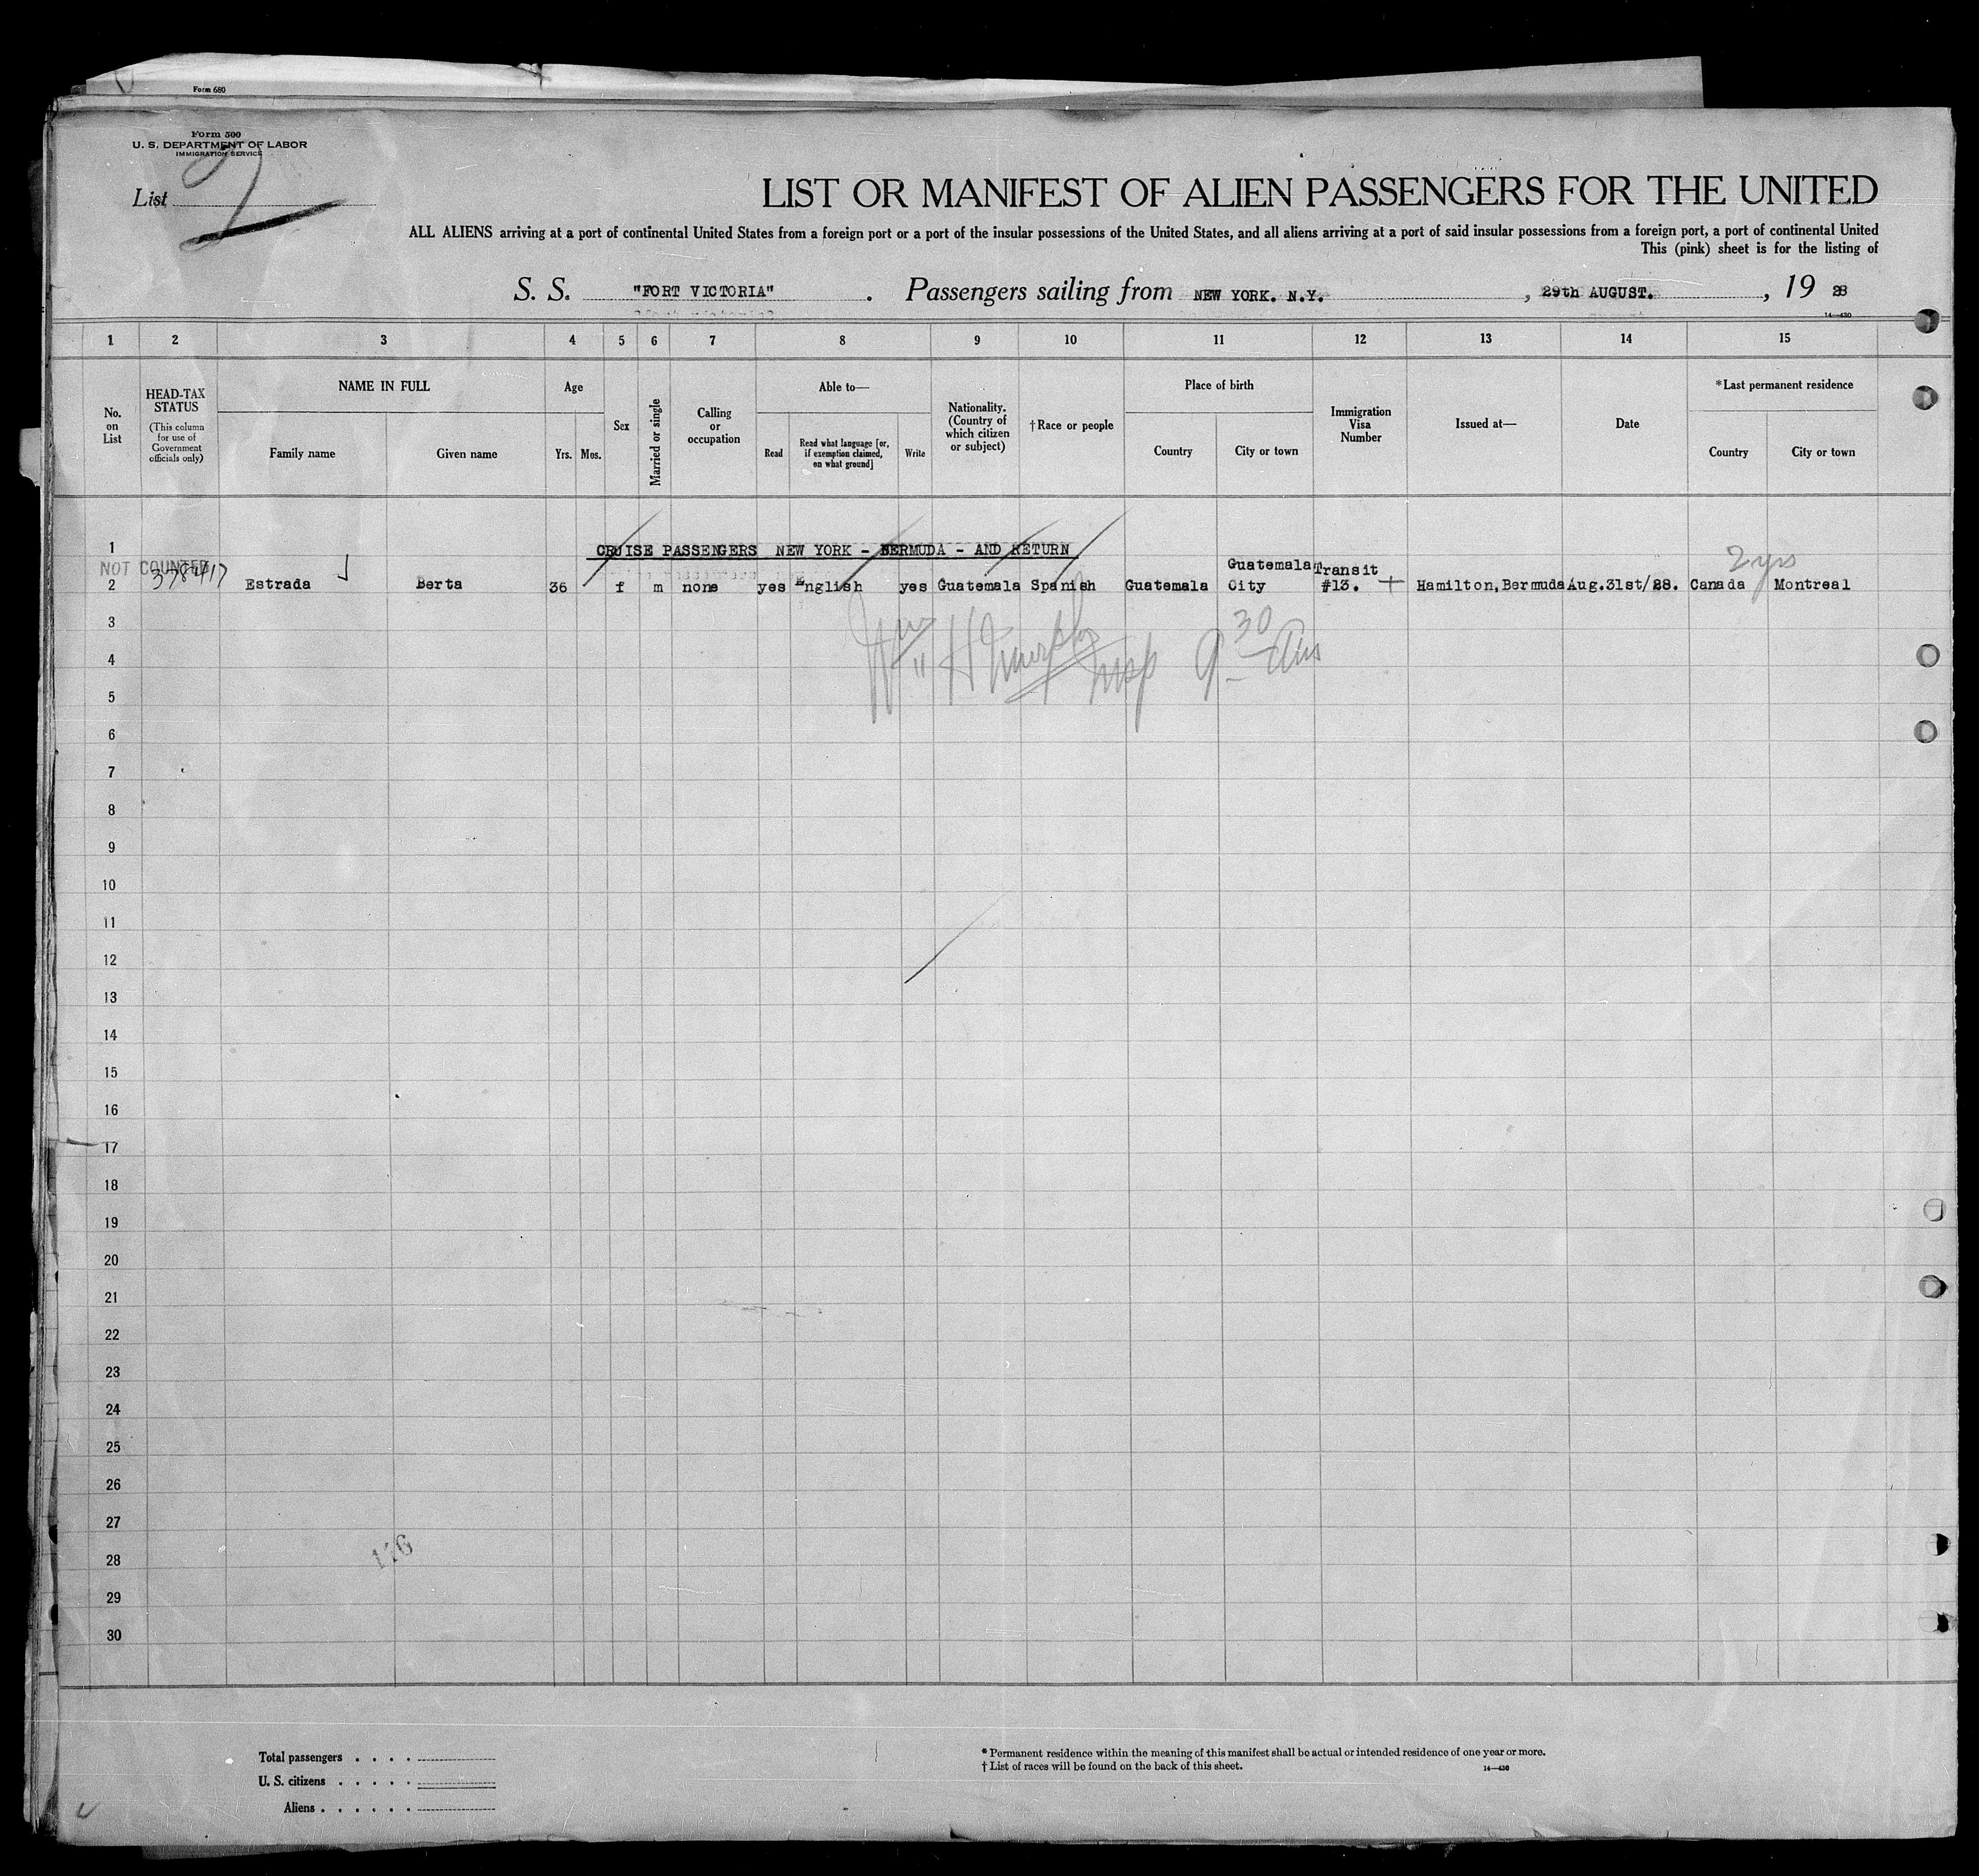 Form 680
Form 500
U. S. DEPARTMENT OF LABOR
IMMIGRATION SERVICE
List 2
LIST OR MANIFEST OF ALIEN PASSENGERS FOR THE UNITED
ALL ALIENS arriving at a port of continental United States from a foreign port or a port of the insular possessions of the United States, and all aliens arriving at a port of said insular possessions from a foreign port, a port of continental United
This (pink) sheet is for the listing of
S. S. "FORT VICTORIA" . Passengers sailing from NEW YORK. N.Y. , 29th AUGUST. , 19 28
14—430
1 2 3 4 5 6 7 8 9 10 11 12 13 14 15
No. on List
HEAD-TAX STATUS
(This column for use of Government officials only)
NAME IN FULL
Family name
Given name
Age
Yrs.
Mos.
Sex
Married or single
Calling or occupation
Able to—
Read
Read what language [or, if exemption claimed, on what ground]
Write
Nationality. (Country of which citizen or subject)
†Race or people
Place of birth
Country
City or town
Immigration Visa Number
Issued at—
Date
*Last permanent residence
Country
City or town
1 CRUISE PASSENGERS NEW YORK - BERMUDA - AND RETURN
NOT COUNTED
2yrs
2 378417 Estrada Berta 36 f m none yes English yes Guatemala Spanish Guatemala Guatemala City Transit #13. Hamilton,Bermuda Aug.31st/28. Canada Montreal
3
Wm H Murphy Insp 9 30 Am
4
5
6
7
8
9
10
11
12
13
14
15
16
17
18
19
20
21
22
23
24
25
26
27
176
28
29
30
Total passengers . . . .
U. S. citizens . . . . .
Aliens . . . . . .
* Permanent residence within the meaning of this manifest shall be actual or intended residence of one year or more.
† List of races will be found on the back of this sheet.
14—430